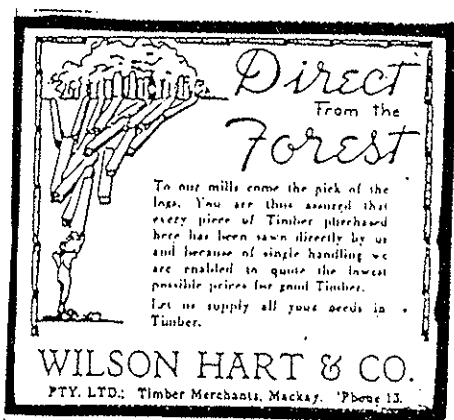 Direct
From the
Forest
To our mills come the pick of the
logs. You are thus assured that
every piece of Timber purchased
here has been sawn directly by us
and because of single handling we
are enabled to quote the lowest
possible prices for good Timber.
Let us supply all your needs in
Timber.
WILSON HART & CO.
PTY. LTD.: Timber Merchants, Mackay. 'Phone 13.